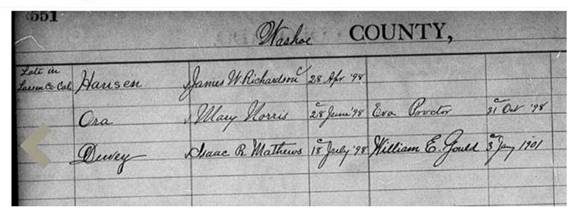 551
Washoe COUNTY,
Late in
Lassen Co Cal Hansen James W. Richardson c 28 Apr '98
Ora Mary Norris c 28 June '98 Eva Proctor c 31 Oct '98
Dewey Isaac R. Mathews c 18 July '98 William E. Gould c 3 Jany 1901